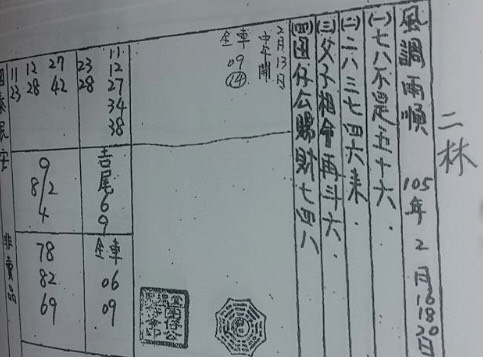 二林
風調雨順 105年2月16 18 20日
(一)七八不是五十六.
(二)二八三七四六来.
(三)父子相會再斗六.
(四)囝仔公賜財七四八
2月13日
中午開
全車 09
⑭
11
12
23 27
28 34
38
27
12 42
11 28
23
吉尾69
9
8/2
4
全車 06
09
78
82
69
國泰民安
非賣品